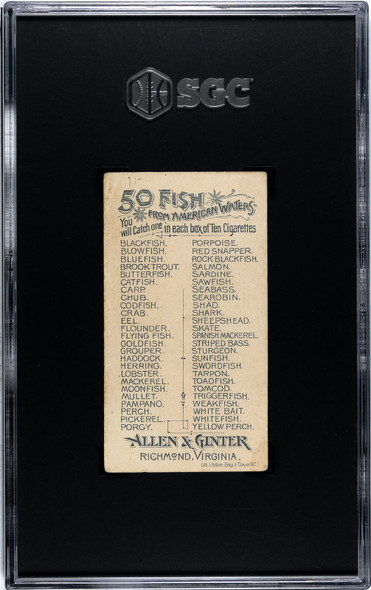 SGC
50 FISH
FROM AMERICAN WATERS
You will Catch one in each box of Ten Cigarettes
BLACKFISH.
BLOWFISH.
BLUEFISH.
BROOK TROUT.
BUTTERFISH.
CATFISH.
CARP.
CHUB.
CODFISH.
CRAB.
EEL.
FLOUNDER.
FLYING FISH.
GOLDFISH.
GROUPER.
HADDOCK.
HERRING.
LOBSTER.
MACKEREL.
MOONFISH.
MULLET.
PAMPANO.
PERCH.
PICKEREL.
PORGY.
PORPOISE.
RED SNAPPER.
ROCK BLACKFISH.
SALMON.
SARDINE.
SAWFISH.
SEABASS.
SEAROBIN.
SHAD.
SHARK.
SHEEPSHEAD.
SKATE.
SPANISH MACKEREL.
STRIPED BASS.
STURGEON.
SUNFISH.
SWORDFISH.
TARPON.
TOADFISH.
TOMCOD.
TRIGGERFISH.
WEAKFISH.
WHITE BAIT.
WHITEFISH.
YELLOW PERCH.
ALLEN & GINTER
RICHMOND, VIRGINIA.